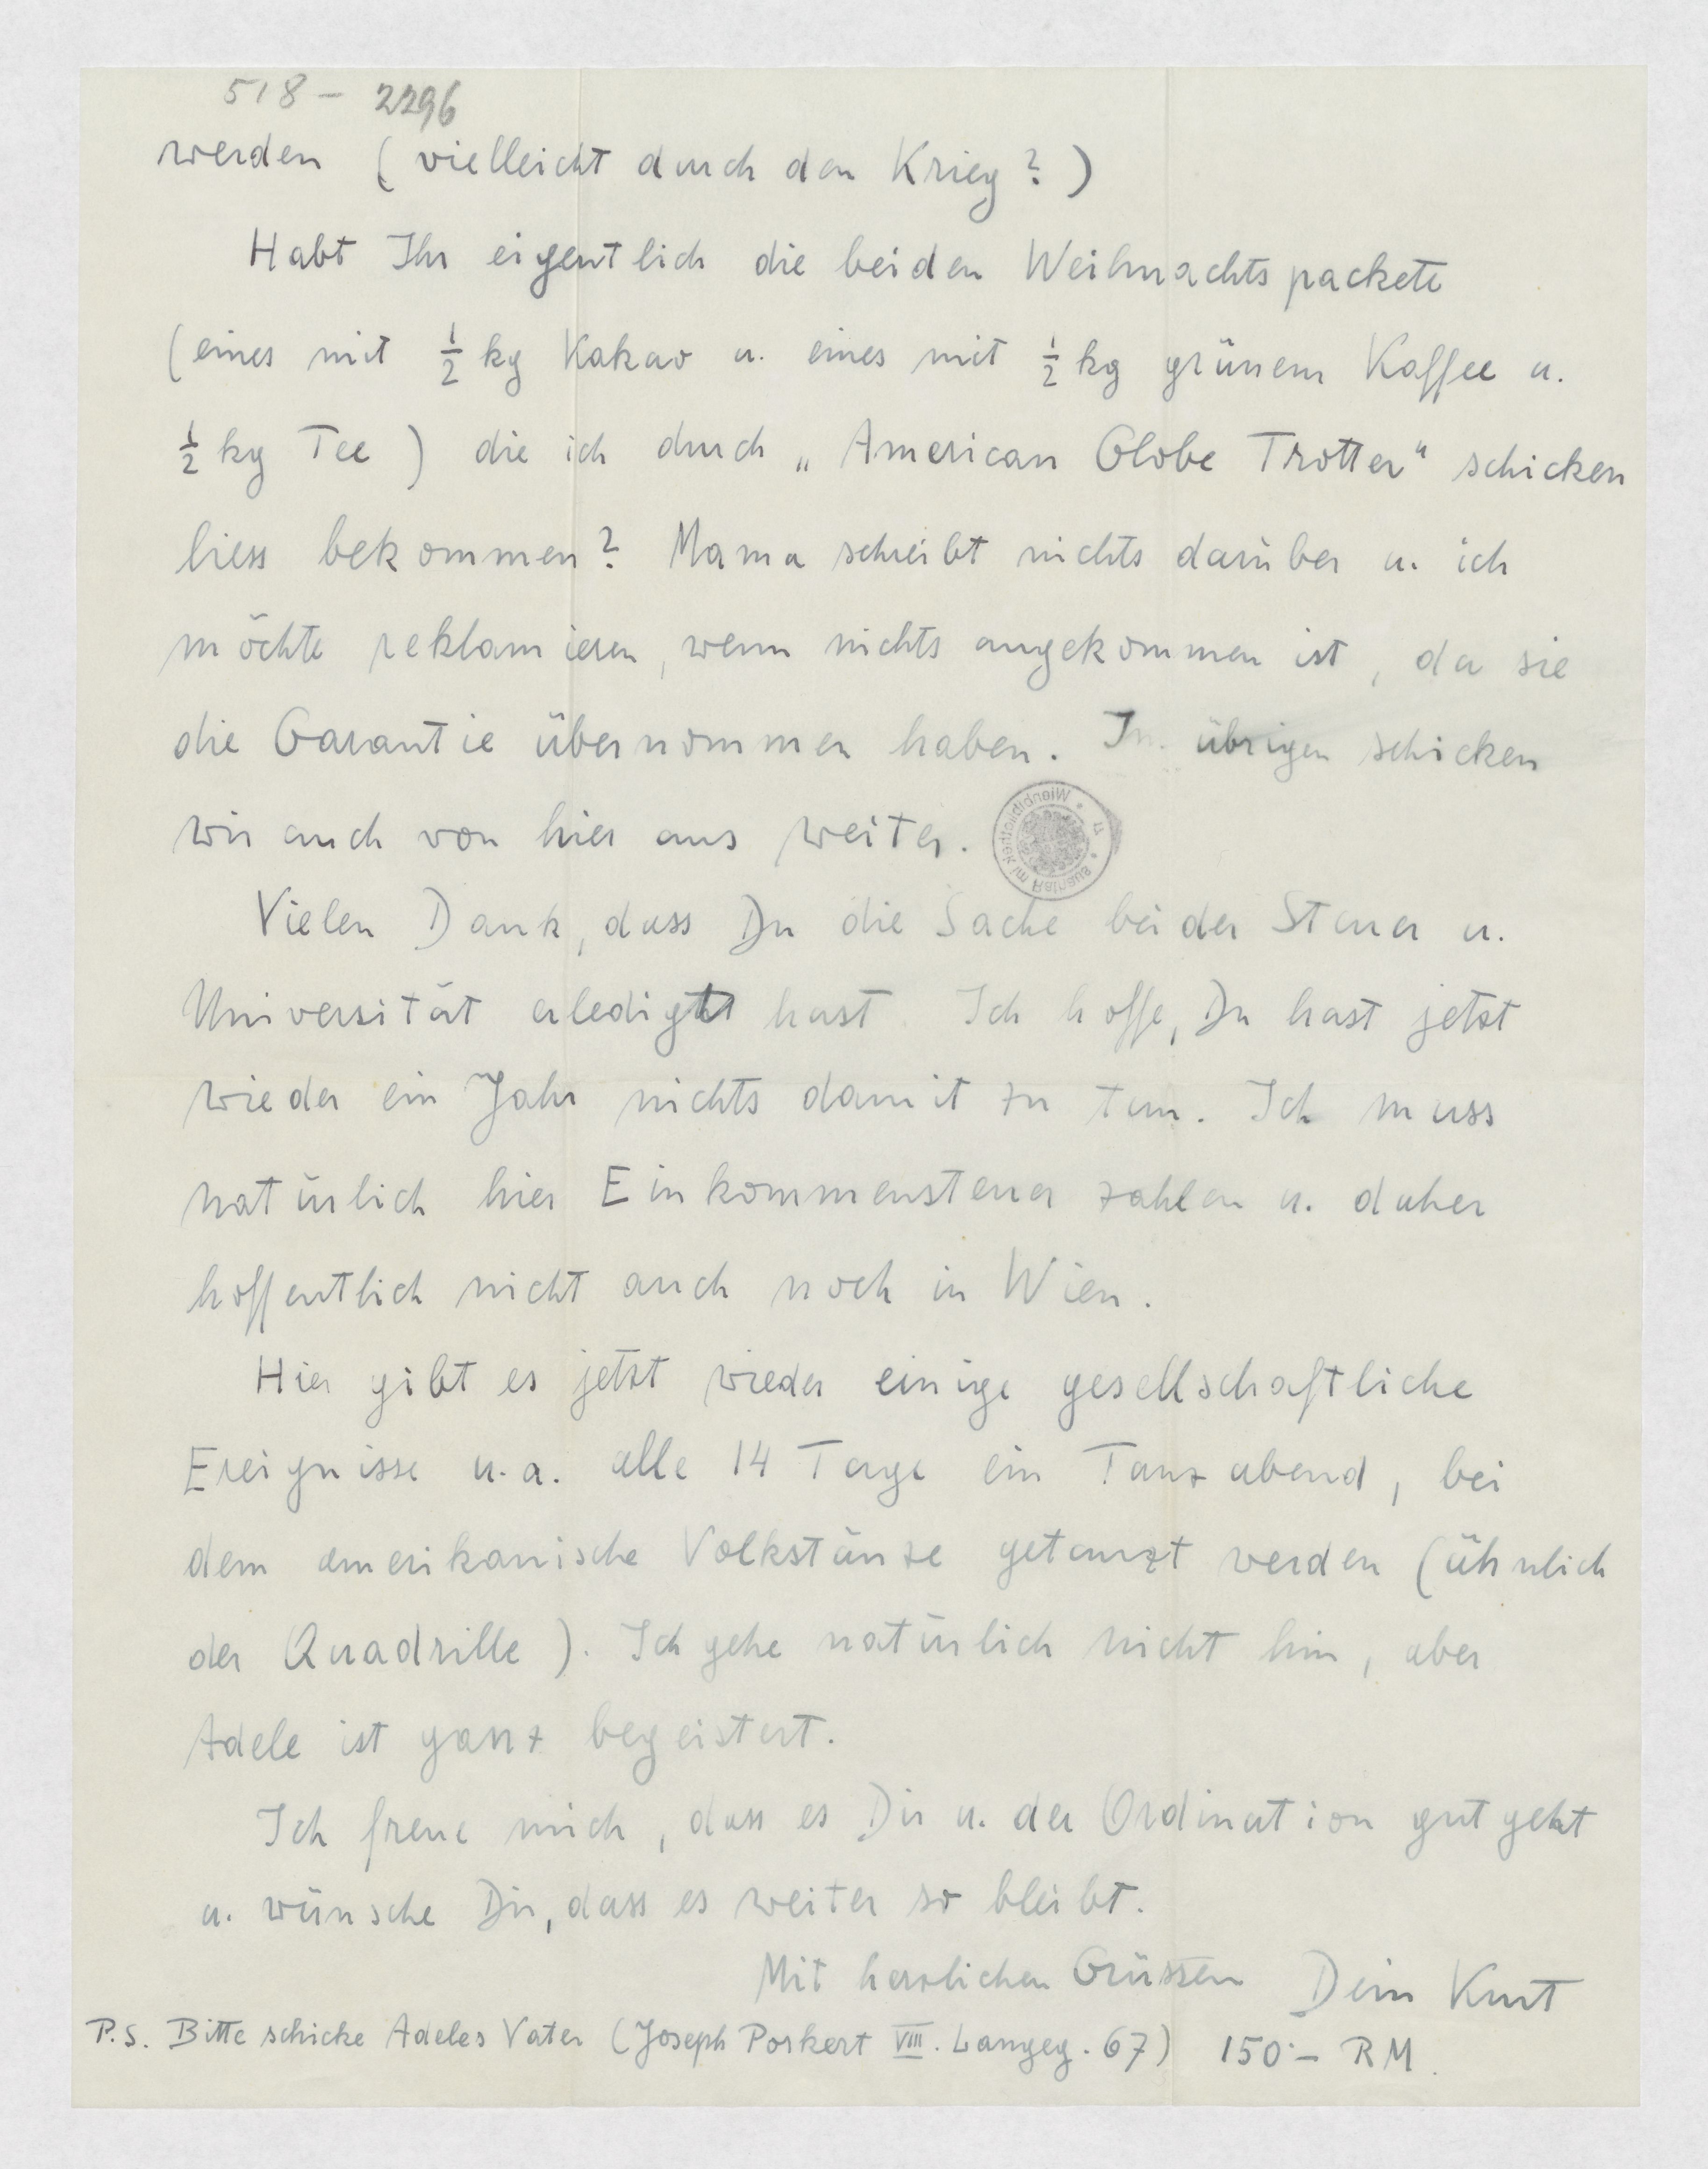 518 - 2296
werden (vielleicht durch den Krieg?)
Habt Ihr eigentlich die beiden Weihnachtspackete
(eines mit ½ kg Kakao u. eines mit ½ kg grünem Kaffee u.
½ kg Tee) die ich durch „American Globe Trotter“ schicken
liess bekommen? Mama schreibt nichts darüber u. ich
möchte reklamieren, wenn nichts angekommen ist, da sie
die Garantie übernommen haben. Im übrigen schicken
wir auch von hier aus weiter.
Vielen Dank, dass Du die Sache bei der Steuer u.
Universität erledigt hast. Ich hoffe, Du hast jetzt
wieder ein Jahr nichts damit zu tun. Ich muss
natürlich hier Einkommensteuer zahlen u. daher
hoffentlich nicht auch noch in Wien.
Hier gibt es jetzt wieder einige gesellschaftliche
Ereignisse u.a. alle 14 Tage ein Tanzabend, bei
dem amerikanische Volkstänze getanzt werden (ähnlich
der Quadrille). Ich gehe natürlich nicht hin, aber
Adele ist ganz begeistert.
Ich freue mich, dass es Dir u. der Ordination gut geht
u. wünsche Dir, dass es weiter so bleibt.
Mit herzlichen Grüssen Dein Kurt
P.S. Bitte schicke Adeles Vater (Joseph Porkert VIII. Langeg. 67) 150·– RM.